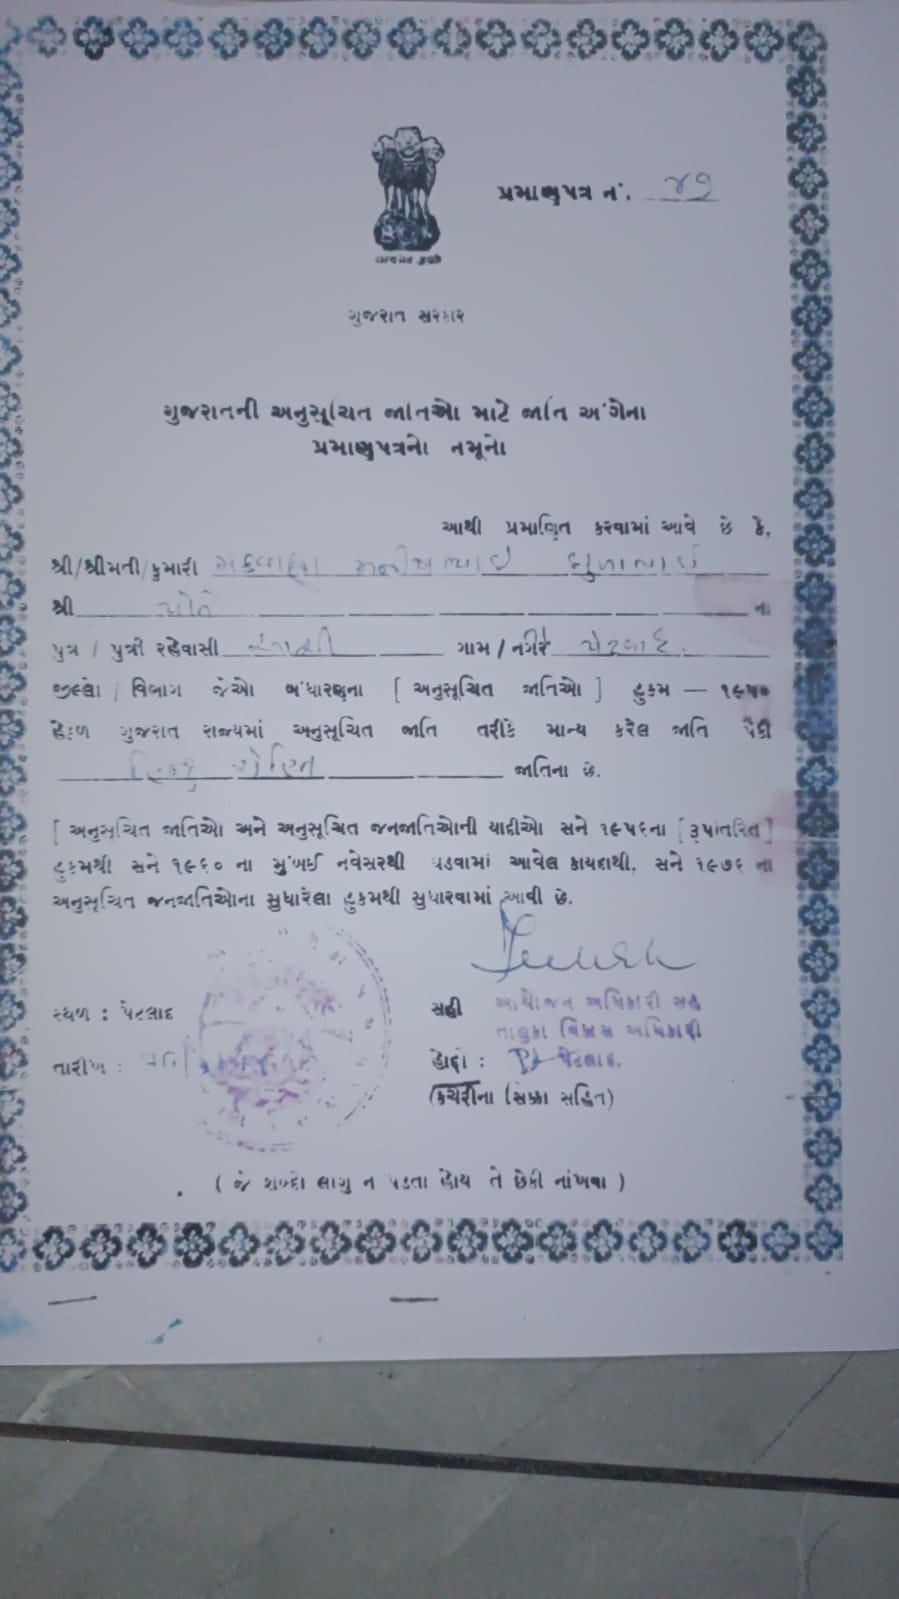 પ્રમાણપત્ર નં. ૪૭
ગુજરાત સરકાર
ગુજરાતની અનુસૂચિત જાતિઓ માટે જાતિ અંગેના
પ્રમાણપત્રનો નમૂનો
આથી પ્રમાણિત કરવામાં આવે છે કે,
શ્રી/શ્રીમતી/કુમારી મકવાણા
શ્રી પોતે ના
પુત્ર / પુત્રી રહેવાસી ગામ/નગર પેટલાદ
જીલ્લો / વિભાગ જેઓ બંધારણના [ અનુસૂચિત જાતિઓ ] હુકમ — ૧૯૫૦
હેઠળ ગુજરાત રાજ્યમાં અનુસૂચિત જાતિ તરીકે માન્ય કરેલ જાતિ પૈકી
હિન્દુ જાતિના છે.
[ અનુસૂચિત જાતિઓ અને અનુસૂચિત જનજાતિઓની યાદીઓ સને ૧૯૫૬ના [રૂપાંતરિત]
હુકમથી સને ૧૯૬૦ ના મુંબઈ નવેસરથી ઘડવામાં આવેલ કાયદાથી, સને ૧૯૭૬ ના
અનુસૂચિત જનજાતિઓના સુધારેલા હુકમથી સુધારવામાં આવી છે.
સ્થળ : પેટલાદ
તારીખ :
સહી આયોજન અધિકારી સહ
તાલુકા વિકાસ અધિકારી
હોદ્દો : પેટલાદ.
કચેરીના (સિક્કા સહિત)
( જે શબ્દો લાગુ ન પડતા હોય તે છેકી નાંખવા )